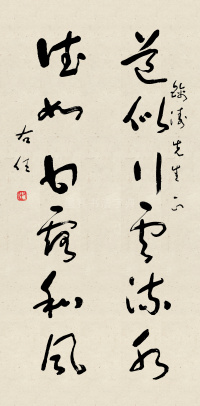 先生正
道似行雲流水
德如甘露和風
右任